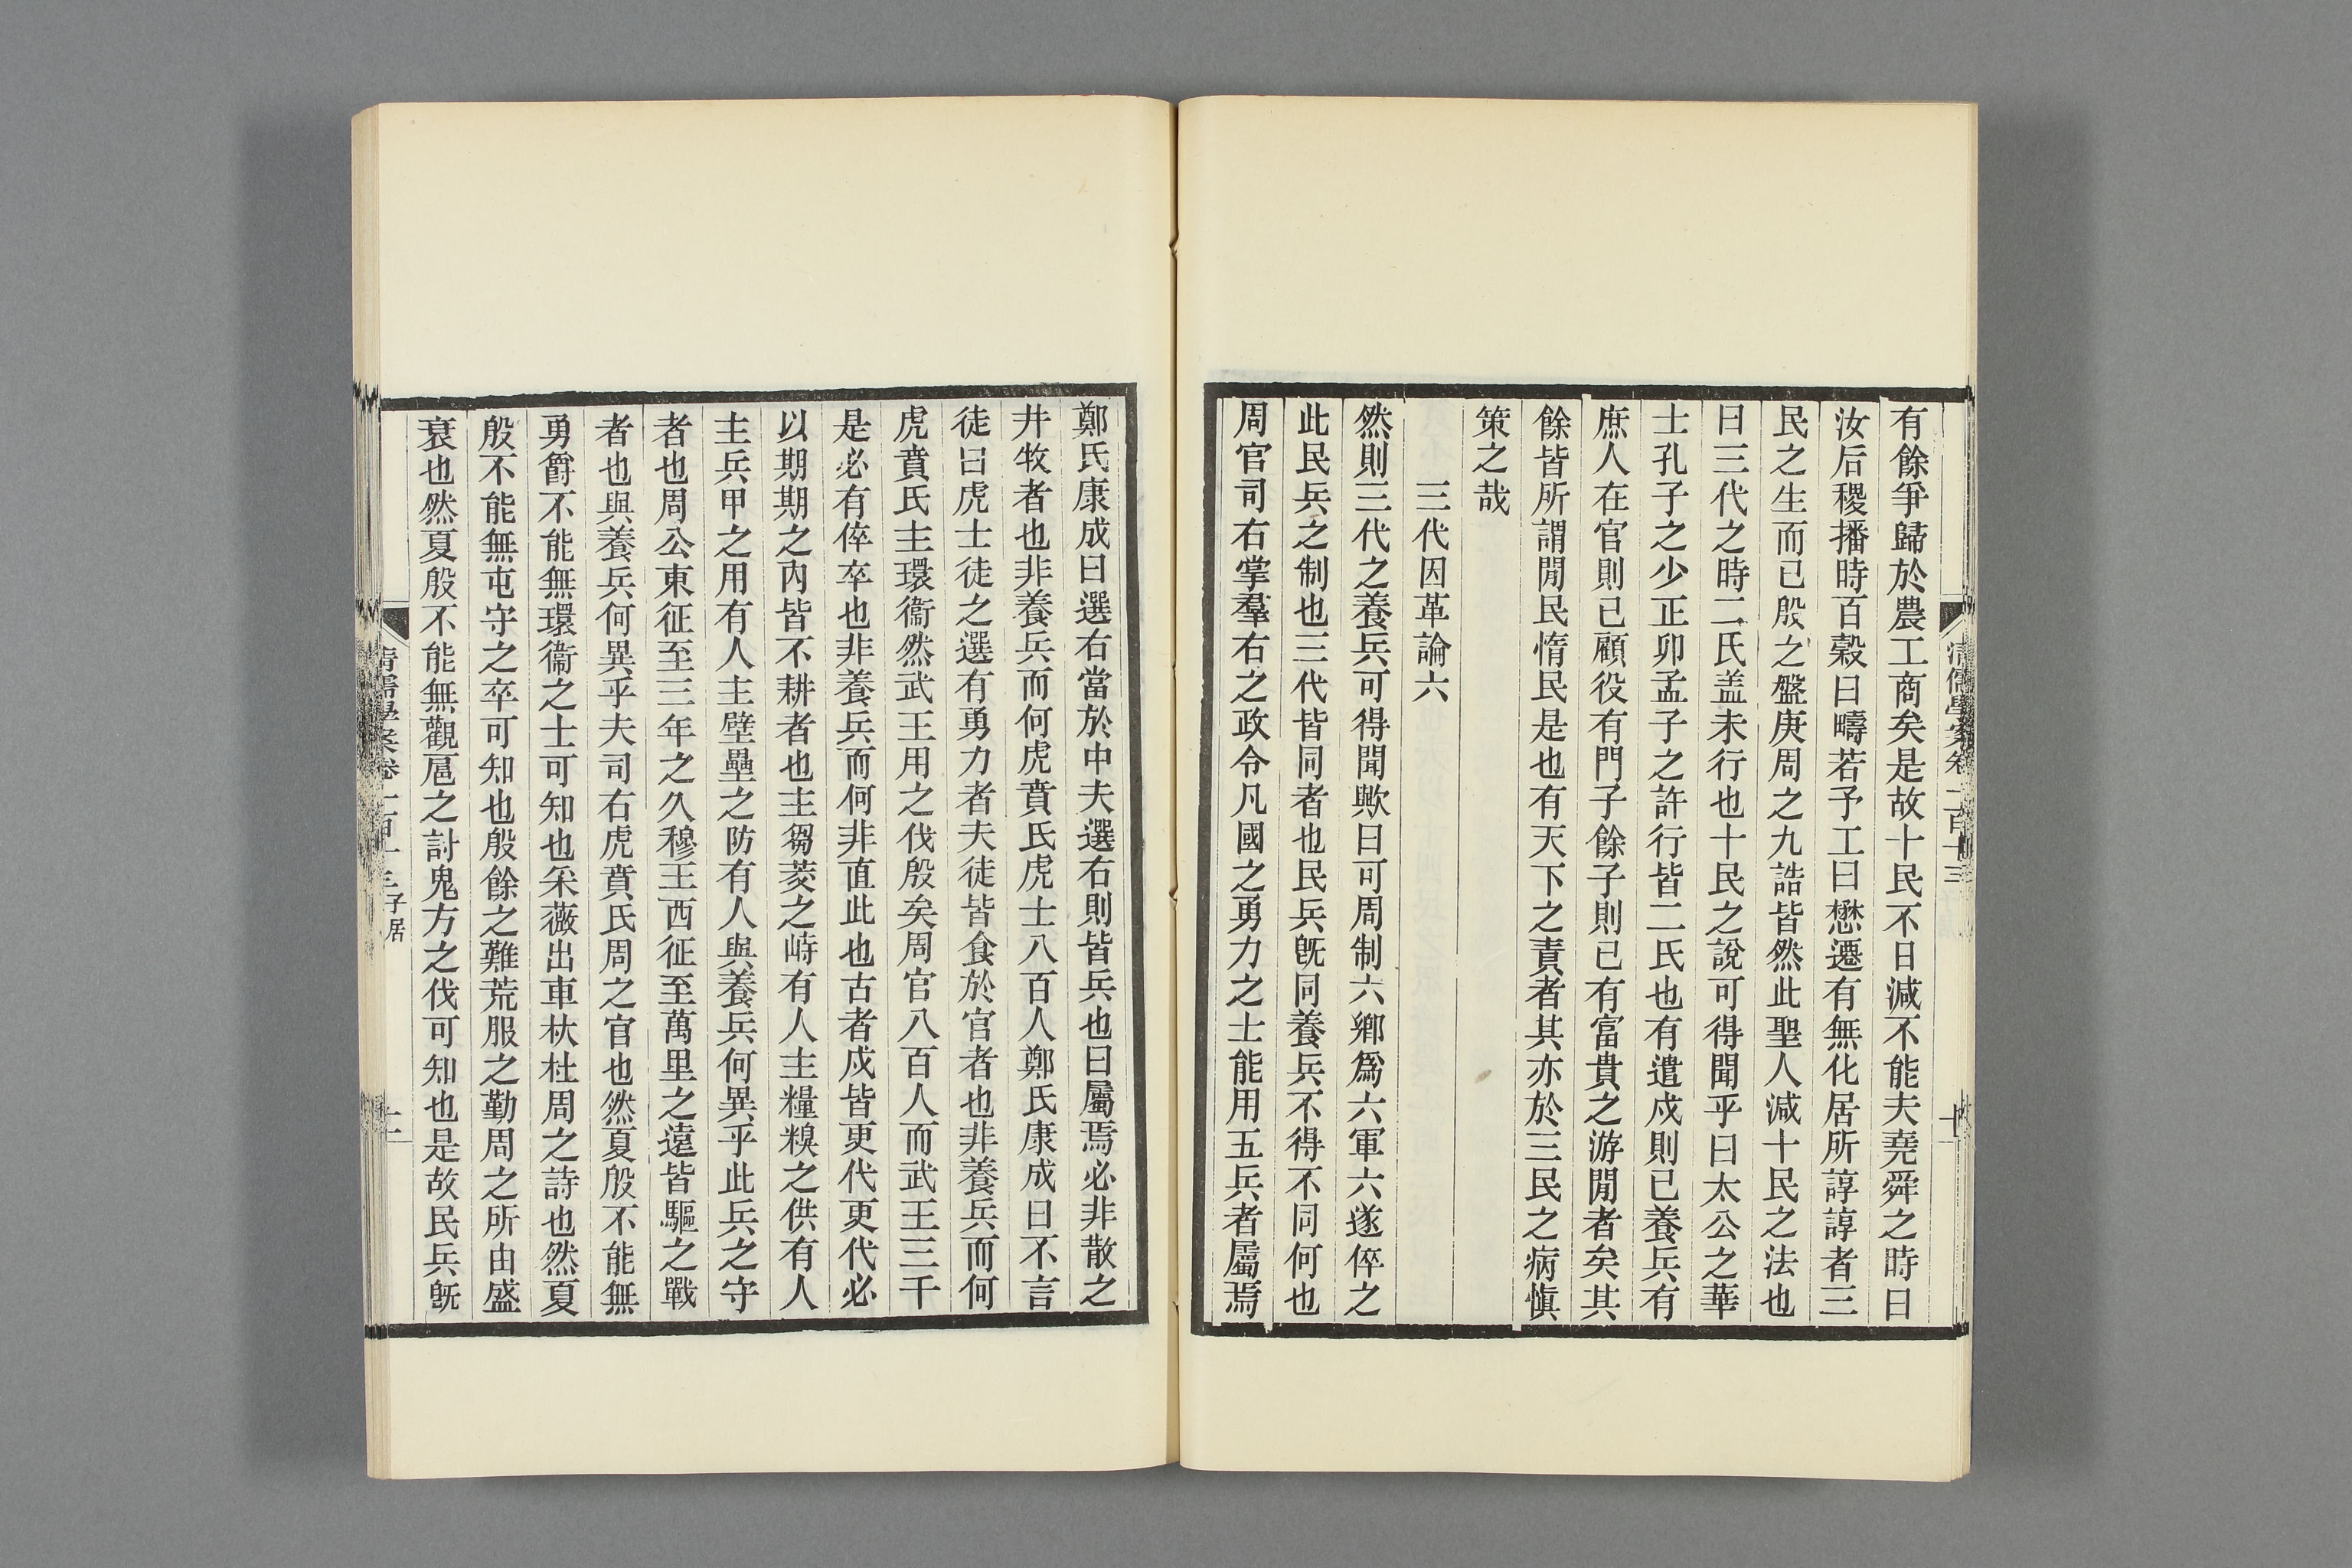 有餘爭歸於農工商矣是故十民不日減不能夫堯舜之時曰
汝后稷播時百穀曰疇若予工曰懋遷有無化居所諄諄者三
民之生而已殷之盤庚周之九誥皆然此聖人減十民之法也
曰三代之時二氏盖未行也十民之說可得聞乎曰太公之華
士孔子之少正卯孟子之許行皆二氏也有遣戍則已養兵有
庶人在官則已顧役有門子餘子則已有富貴之游閒者矣其
餘皆所謂閒民惰民是也有天下之責者其亦於三民之病愼
策之哉
三代因革論六
然則三代之養兵可得聞歟曰可周制六鄉爲六軍六遂倅之
此民兵之制也三代皆同者也民兵旣同養兵不得不同何也
周官司右掌羣右之政令凡國之勇力之士能用五兵者屬焉
清儒學案卷二百十三
十
鄭氏康成曰選右當於中夫選右則皆兵也曰屬焉必非散之
井牧者也非養兵而何虎賁氏虎士八百人鄭氏康成曰不言
徒曰虎士徒之選有勇力者夫徒皆食於官者也非養兵而何
虎賁氏主環衞然武王用之伐殷矣周官八百人而武王三千
是必有倅卒也非養兵而何非直此也古者戍皆更代更代必
以期期之內皆不耕者也主芻茭之峙有人主糧糗之供有人
主兵甲之用有人主壁壘之防有人與養兵何異乎此兵之守
者也周公東征至三年之久穆王西征至萬里之遠皆驅之戰
者也與養兵何異乎夫司右虎賁氏周之官也然夏殷不能無
勇爵不能無環衞之士可知也采薇出車杕杜周之詩也然夏
殷不能無屯守之卒可知也殷餘之難荒服之勤周之所由盛
衰也然夏殷不能無觀扈之討鬼方之伐可知也是故民兵旣
清儒學案卷二百十三 子居
十一